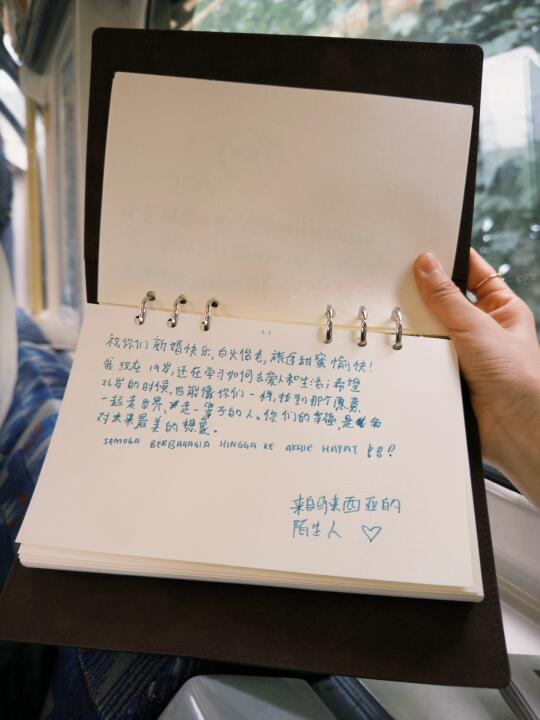 祝你们新婚快乐,白头偕老,旅途甜蜜愉快!
我现在19岁,还在学习如何去爱人和生活;希望
26岁的时候,也能像你们一样,找到那个愿意
一起走世界,走一辈子的人。你们的幸福,是
对未来最美的想象。
SEMOGA BERBAHAGIA HINGGA KE AKHIR HAYAT !!!
来自马来西亚的
陌生人 ♡